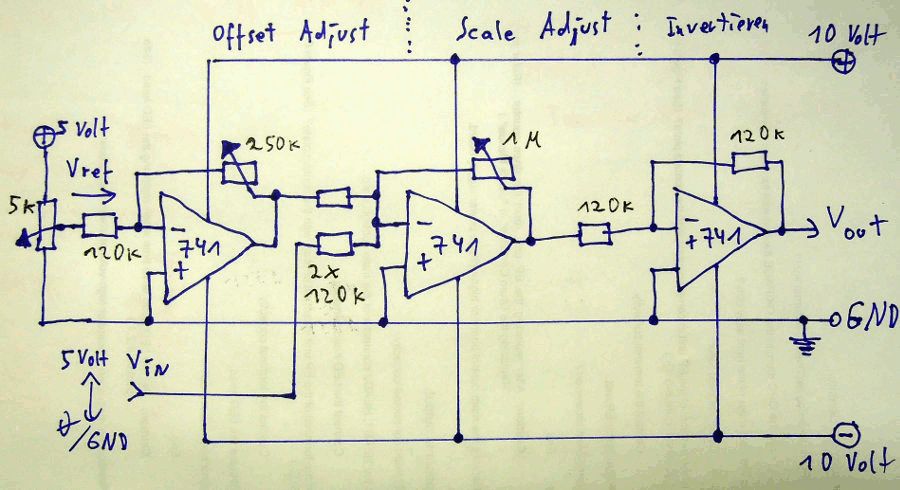 Offset Adjust
Scale Adjust
Invertieren
10 Volt
5 Volt
Vref
5k
120k
250k
741
2x
120k
1M
741
120k
120k
741
Vout
GND
5Volt
Vin
/GND
10 Volt